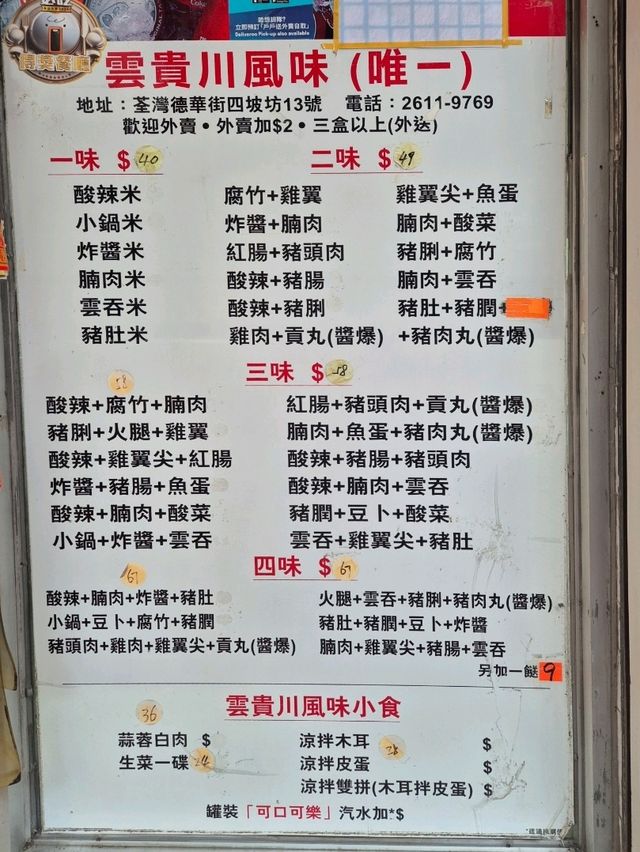 戶外
能想購?
立即預訂「戶戶送外賣自取」
Deliveroo Pick-up also available
雲貴川風味 (唯一)
地址：荃灣德華街四坡坊13號 電話：2611-9769
歡迎外賣•外賣加$2•三盒以上(外送)
一味 $ 40 二味 $ 49
酸辣米 腐竹+雞翼 雞翼尖+魚蛋
小鍋米 炸醬+腩肉 腩肉+酸菜
炸醬米 紅腸+豬頭肉 豬脷+腐竹
腩肉米 酸辣+豬腸 腩肉+雲吞
雲吞米 酸辣+豬脷 豬肚+豬膶+
豬肚米 雞肉+貢丸(醬爆) +豬肉丸(醬爆)
三味 $ 58
58
酸辣+腐竹+腩肉 紅腸+豬頭肉+貢丸(醬爆)
豬脷+火腿+雞翼 腩肉+魚蛋+豬肉丸(醬爆)
酸辣+雞翼尖+紅腸 酸辣+豬腸+豬頭肉
炸醬+豬腸+魚蛋 酸辣+腩肉+雲吞
酸辣+腩肉+酸菜 豬膶+豆卜+酸菜
小鍋+炸醬+雲吞 雲吞+雞翼尖+豬肚
四味 $ 67
67
酸辣+腩肉+炸醬+豬肚 火腿+雲吞+豬脷+豬肉丸(醬爆)
小鍋+豆卜+腐竹+豬膶 豬肚+豬膶+豆卜+炸醬
豬頭肉+雞肉+雞翼尖+貢丸(醬爆) 腩肉+雞翼尖+豬腸+雲吞
另加一餸 9
雲貴川風味小食
36
蒜蓉白肉 $ 涼拌木耳 28 $
生菜一碟 24 涼拌皮蛋 $
涼拌雙拼(木耳拌皮蛋) $
罐裝「可口可樂」汽水加*$